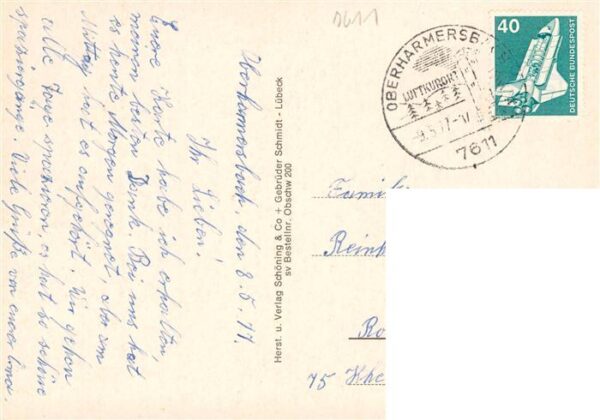 Oberharmersbach, den 8.5.77.
Ihr Lieben!
Eure Karte habe ich erhalten
meinen besten Dank. Bei uns hat
es heute Morgen geregnet, aber am
Mittag hat es aufgehört. Wir gehen
alle Tage spazieren, es hat so schöne
spaziergänge. Viele Grüße von eurer
Herst. u. Verlag Schöning & Co + Gebrüder Schmidt - Lübeck
sv Bestellnr. Obschw 200
7611
OBERHARMERSB
LUFTKURORT
-9.5.77-17
7611
40
DEUTSCHE BUNDESPOST
Famili
Rein
Ro
75 Khe